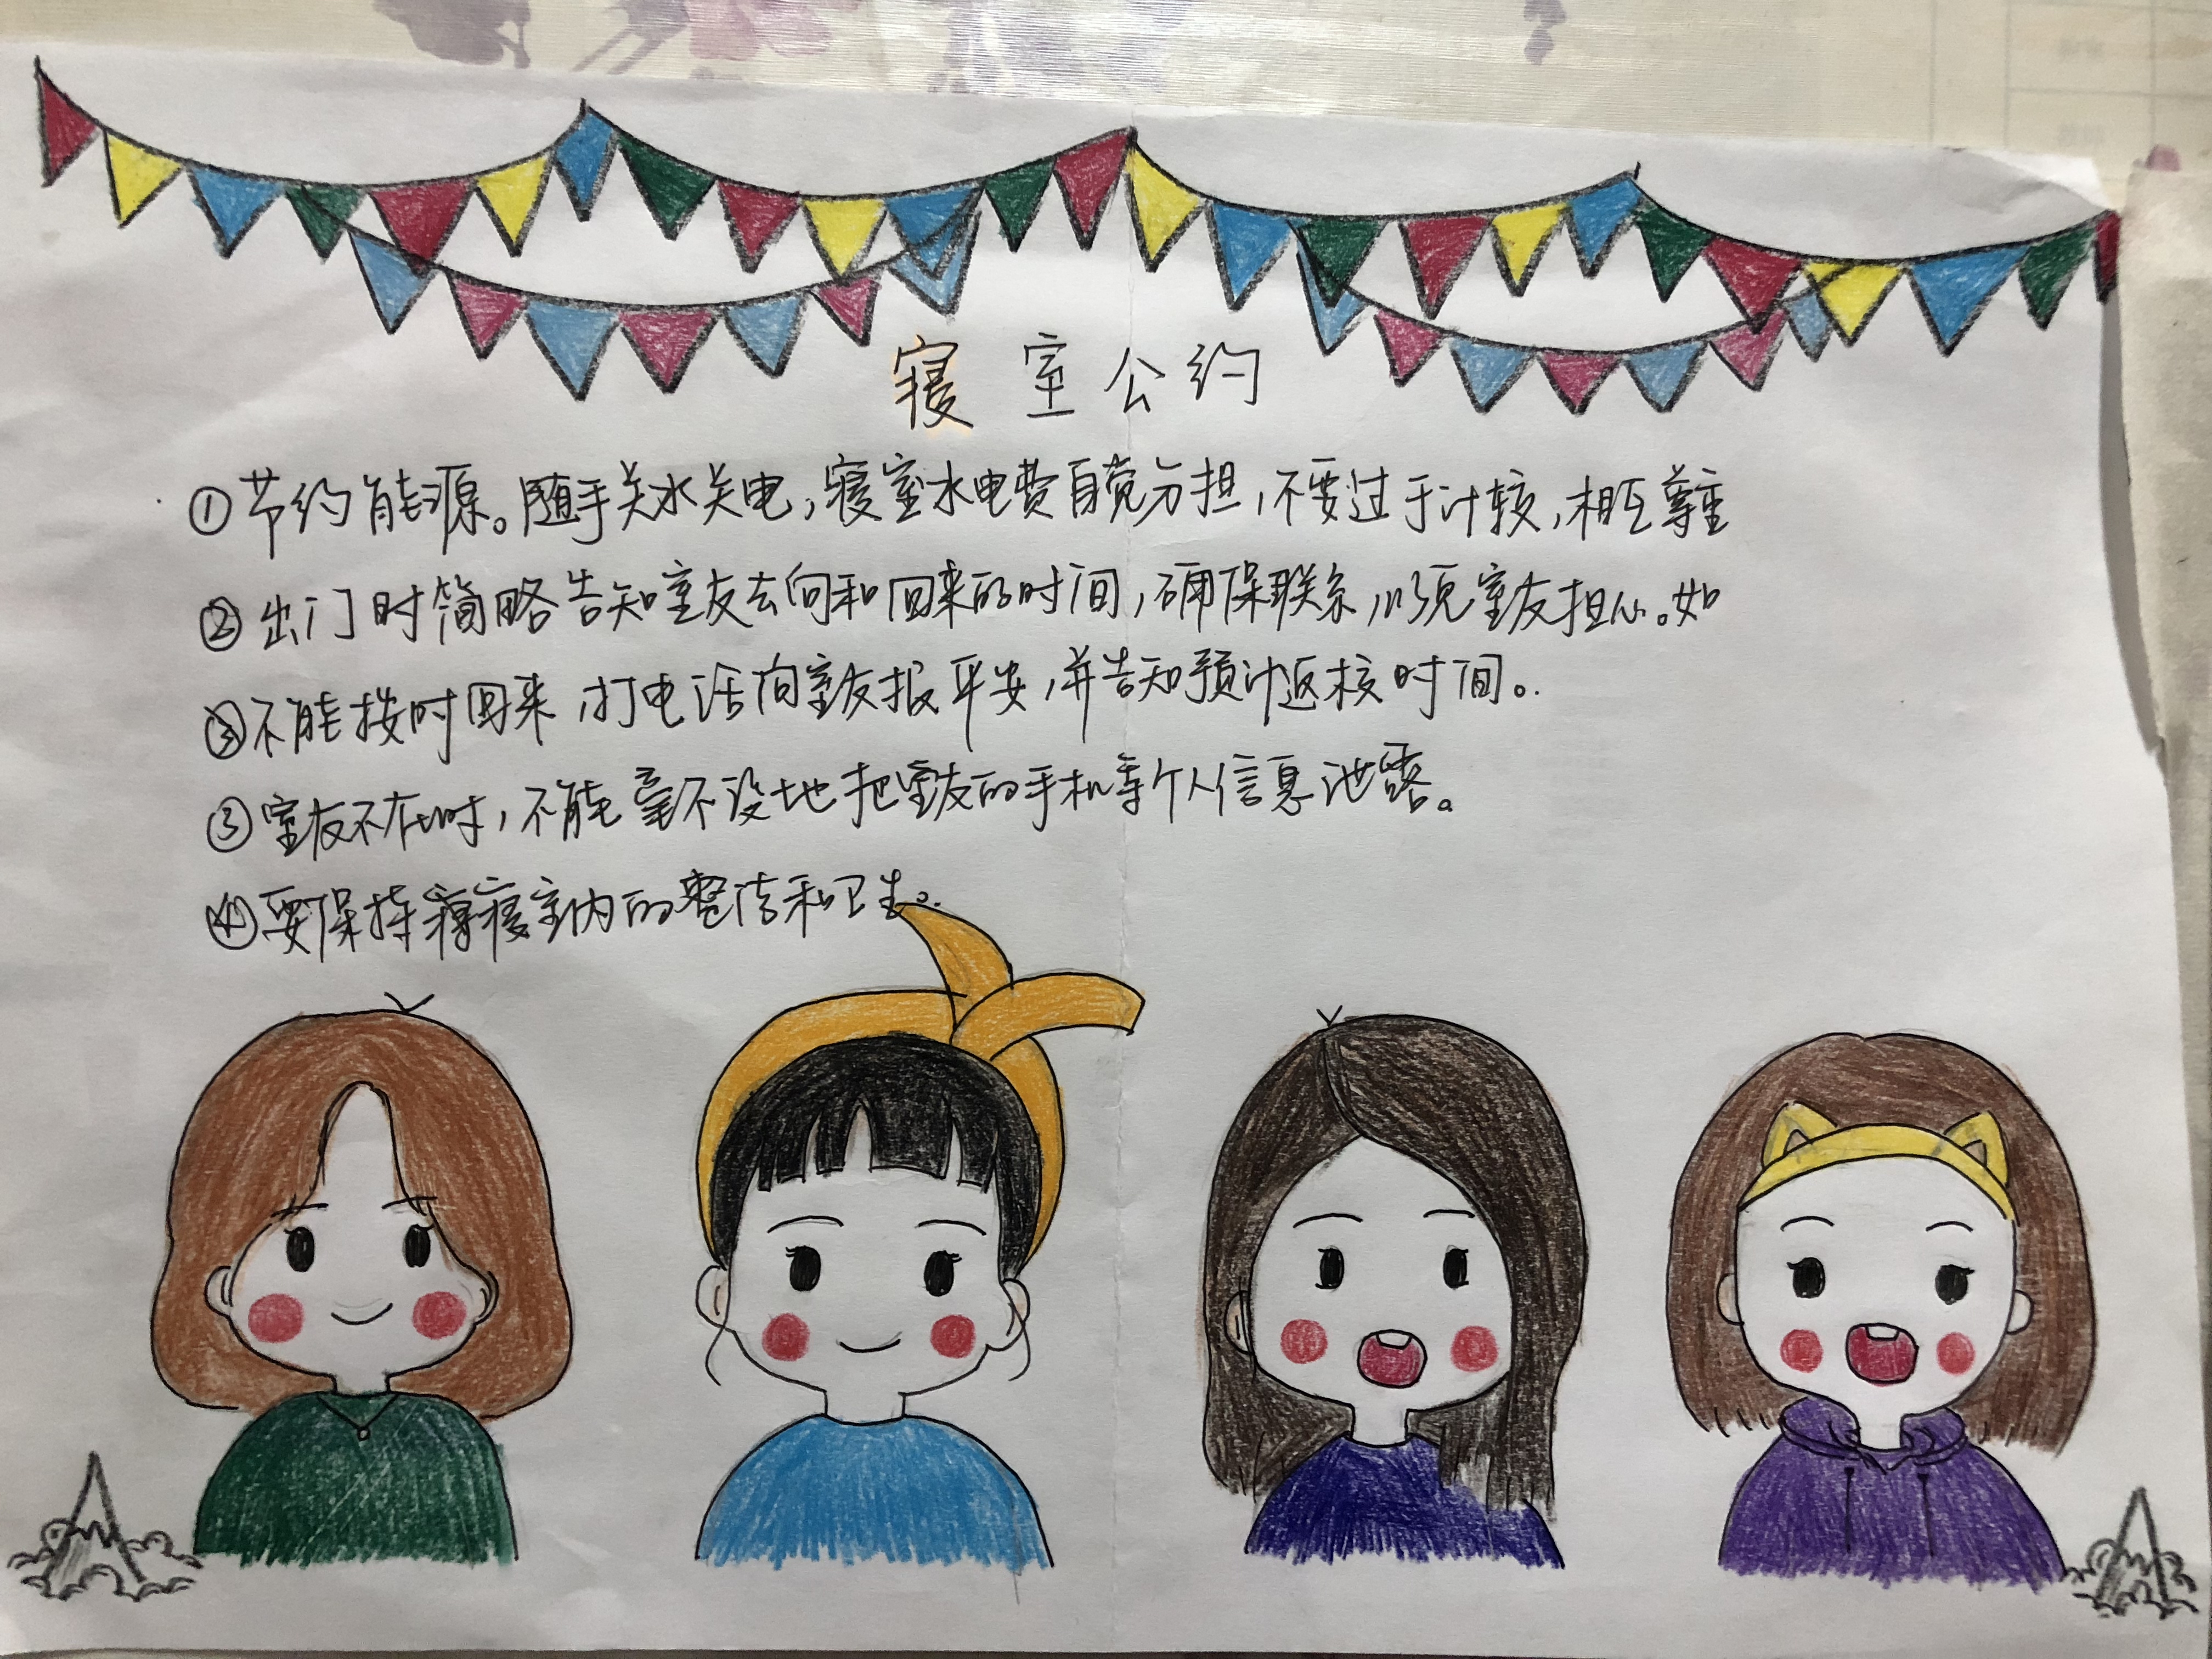 寝室公约
①节约能源。随手关水关电,寝室水电费自觉分担,不要过于计较,相互尊重
②出门时简略告知室友去向和回来的时间,确保联系,以免室友担心。如
不能按时回来,打电话向室友报平安,并告知预计返校时间。
③室友不在时,不能毫不设地把室友的手机等个人信息泄露。
④要保持寝室内的整洁和卫生。